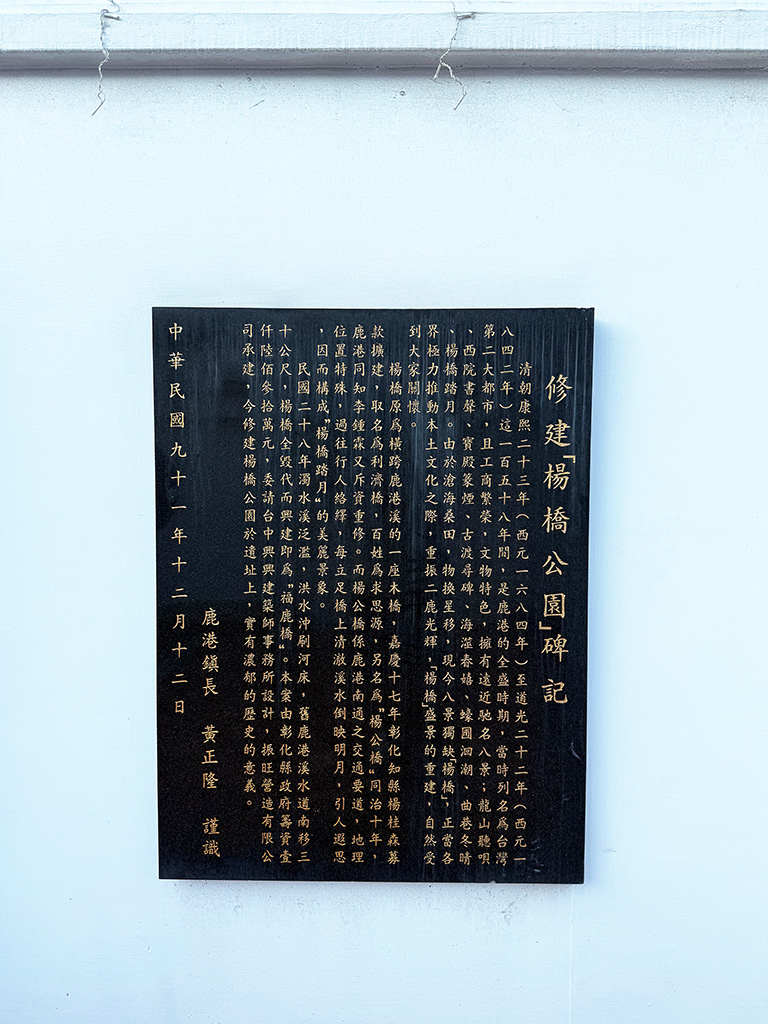 修建「楊橋公園」碑記
清朝康熙二十三年（西元一六八四年）至道光二十二年（西元一
八四二年）這一百五十八年間，是鹿港的全盛時期，當時列名為台灣
第二大都市，且工商繁榮，文物特色，擁有遠近馳名八景；龍山聽唄
、西院書聲、寶殿篆煙、古渡尋碑、海澨春嬉、蠔圃洄潮、曲巷冬晴
、楊橋踏月。由於滄海桑田，物換星移，現今八景獨缺「楊橋」，正當各
界極力推動本土文化之際，重振二鹿光輝，「楊橋」盛景的重建，自然受
到大家關懷。
楊橋原為橫跨鹿港溪的一座木橋，嘉慶十七年彰化知縣楊桂森募
款擴建，取名為利濟橋，百姓為求思源，另名為"楊公橋"同治十年，
鹿港同知李鍾霖又斥資重修。而楊公橋係鹿港南通之交通要道，地理
位置特殊，過往行人絡繹，每立足橋上清澈溪水倒映明月，引人遐思
，因而構成"楊橋踏月"的美麗景象。
民國二十八年濁水溪泛濫，洪水沖刷河床，舊鹿港溪水道南移三
十公尺，楊橋全毀代而興建即為"福鹿橋"。本案由彰化縣政府籌資壹
仟陸佰參拾萬元，委請台中興興建築師事務所設計，振旺營造有限公
司承建，今修建楊橋公園於遺址上，實有濃郁的歷史的意義。
鹿港鎮長 黃正隆 謹識
中華民國九十一年十二月十二日